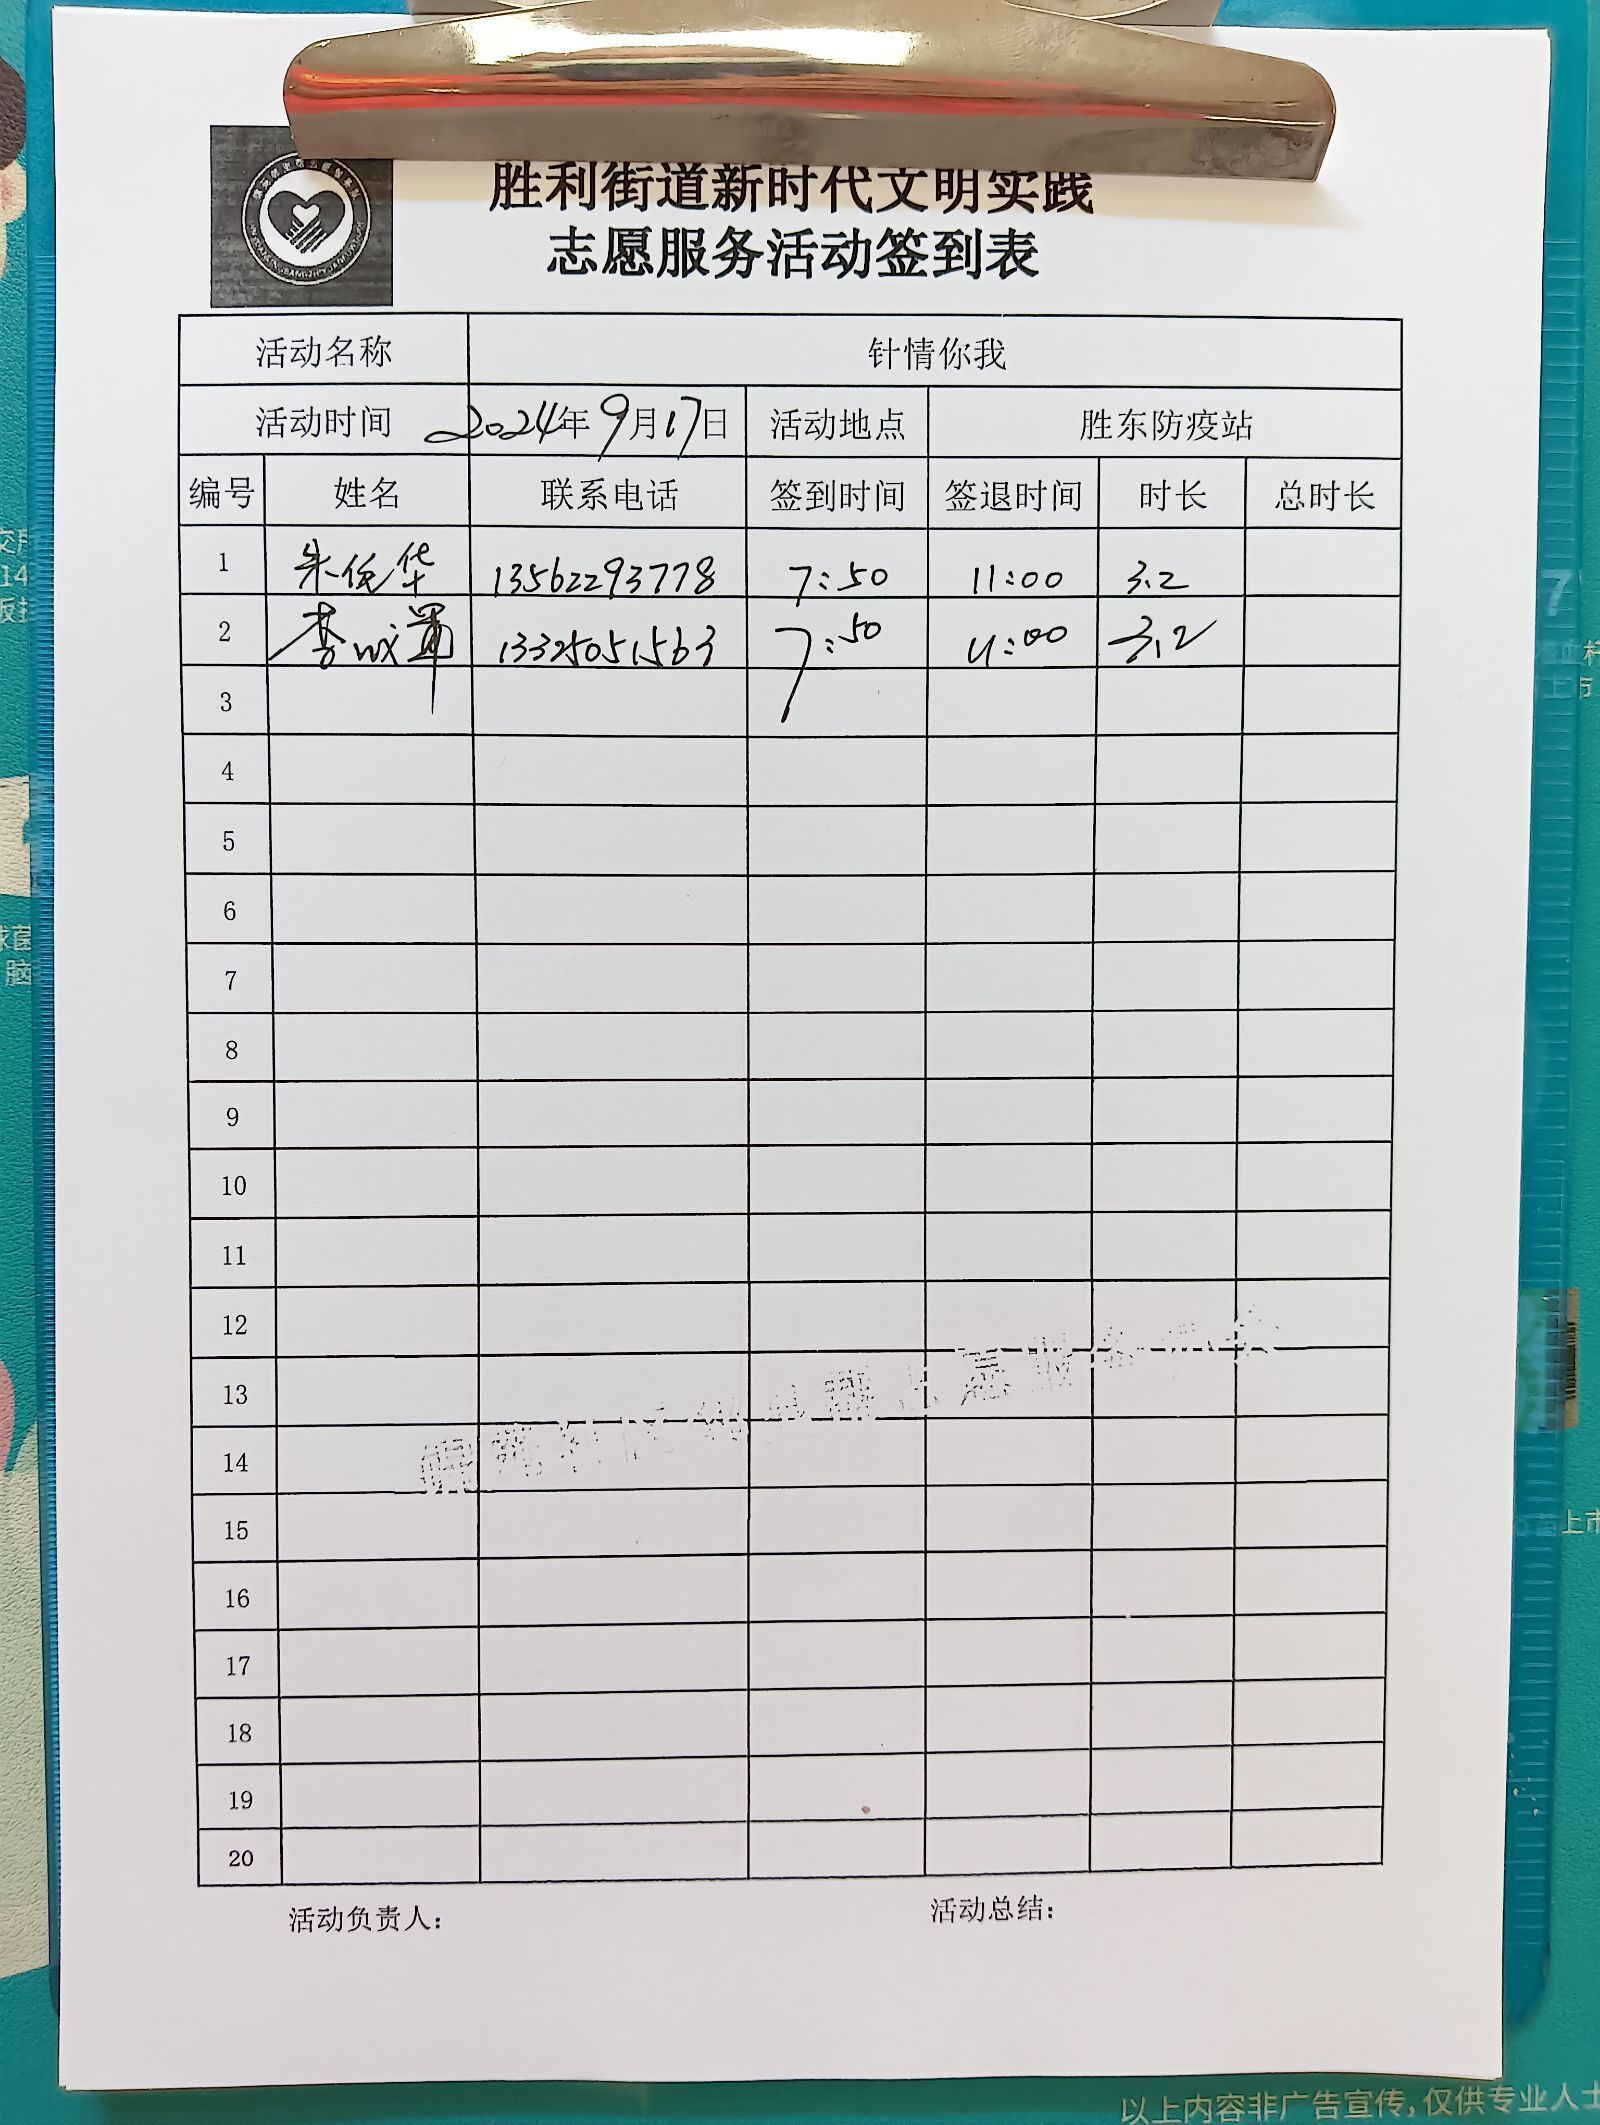 胜利街道新时代文明实践
志愿服务活动签到表
活动名称 针情你我
活动时间 2024年9月17日 活动地点 胜东防疫站
编号 姓名 联系电话 签到时间 签退时间 时长 总时长
1 朱 华 13562293778 7:50 11:00 3.2
2 李 13325051563 7:50 11:00 3.2
3
4
5
6
7
8
9
10
11
12
13
14
15
16
17
18
19
20
活动负责人: 活动总结:
以上内容非广告宣传,仅供专业人士